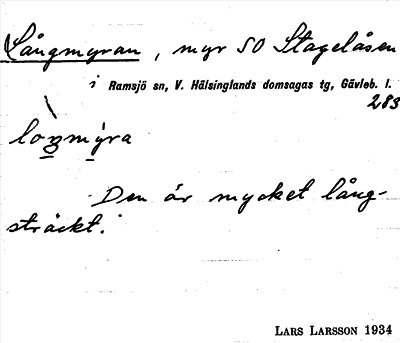 Långmyran, myr SO Stagelåsen
i Ramsjö sn, V. Hälsinglands domsagas tg, Gävleb. l.
283
loŋmyra
Den är mycket lång-
sträckt.
LARS LARSSON 1934